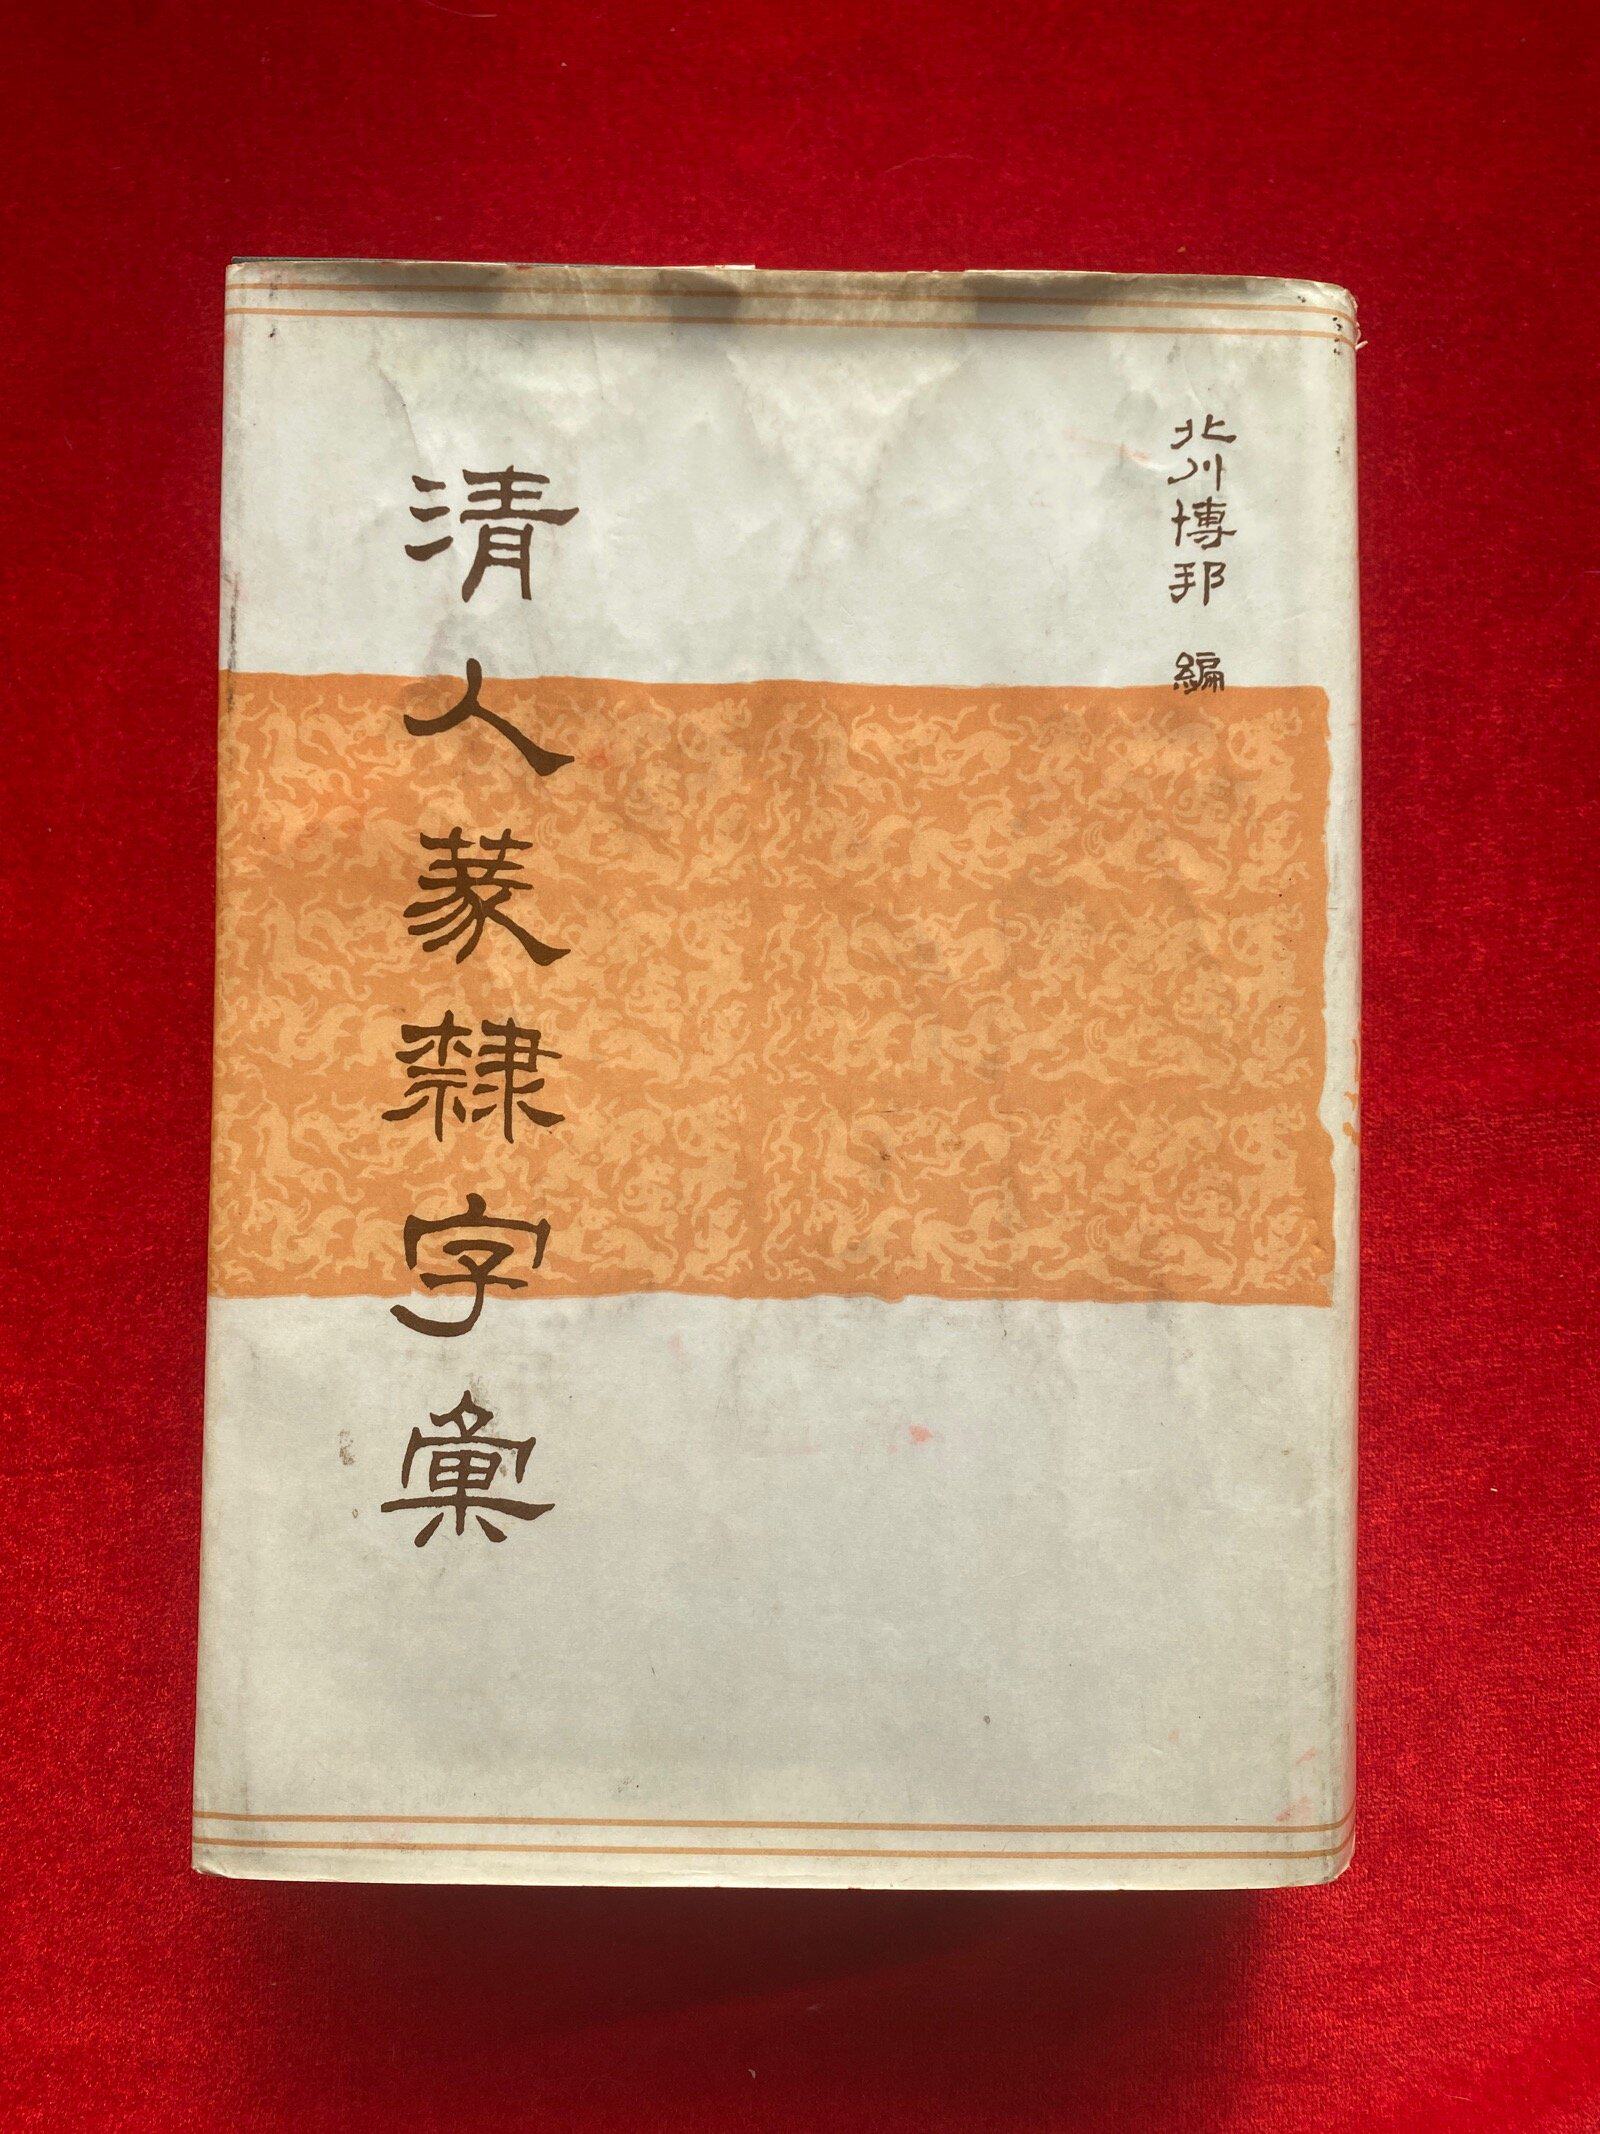 北川博邦 編
清人篆隷字彙